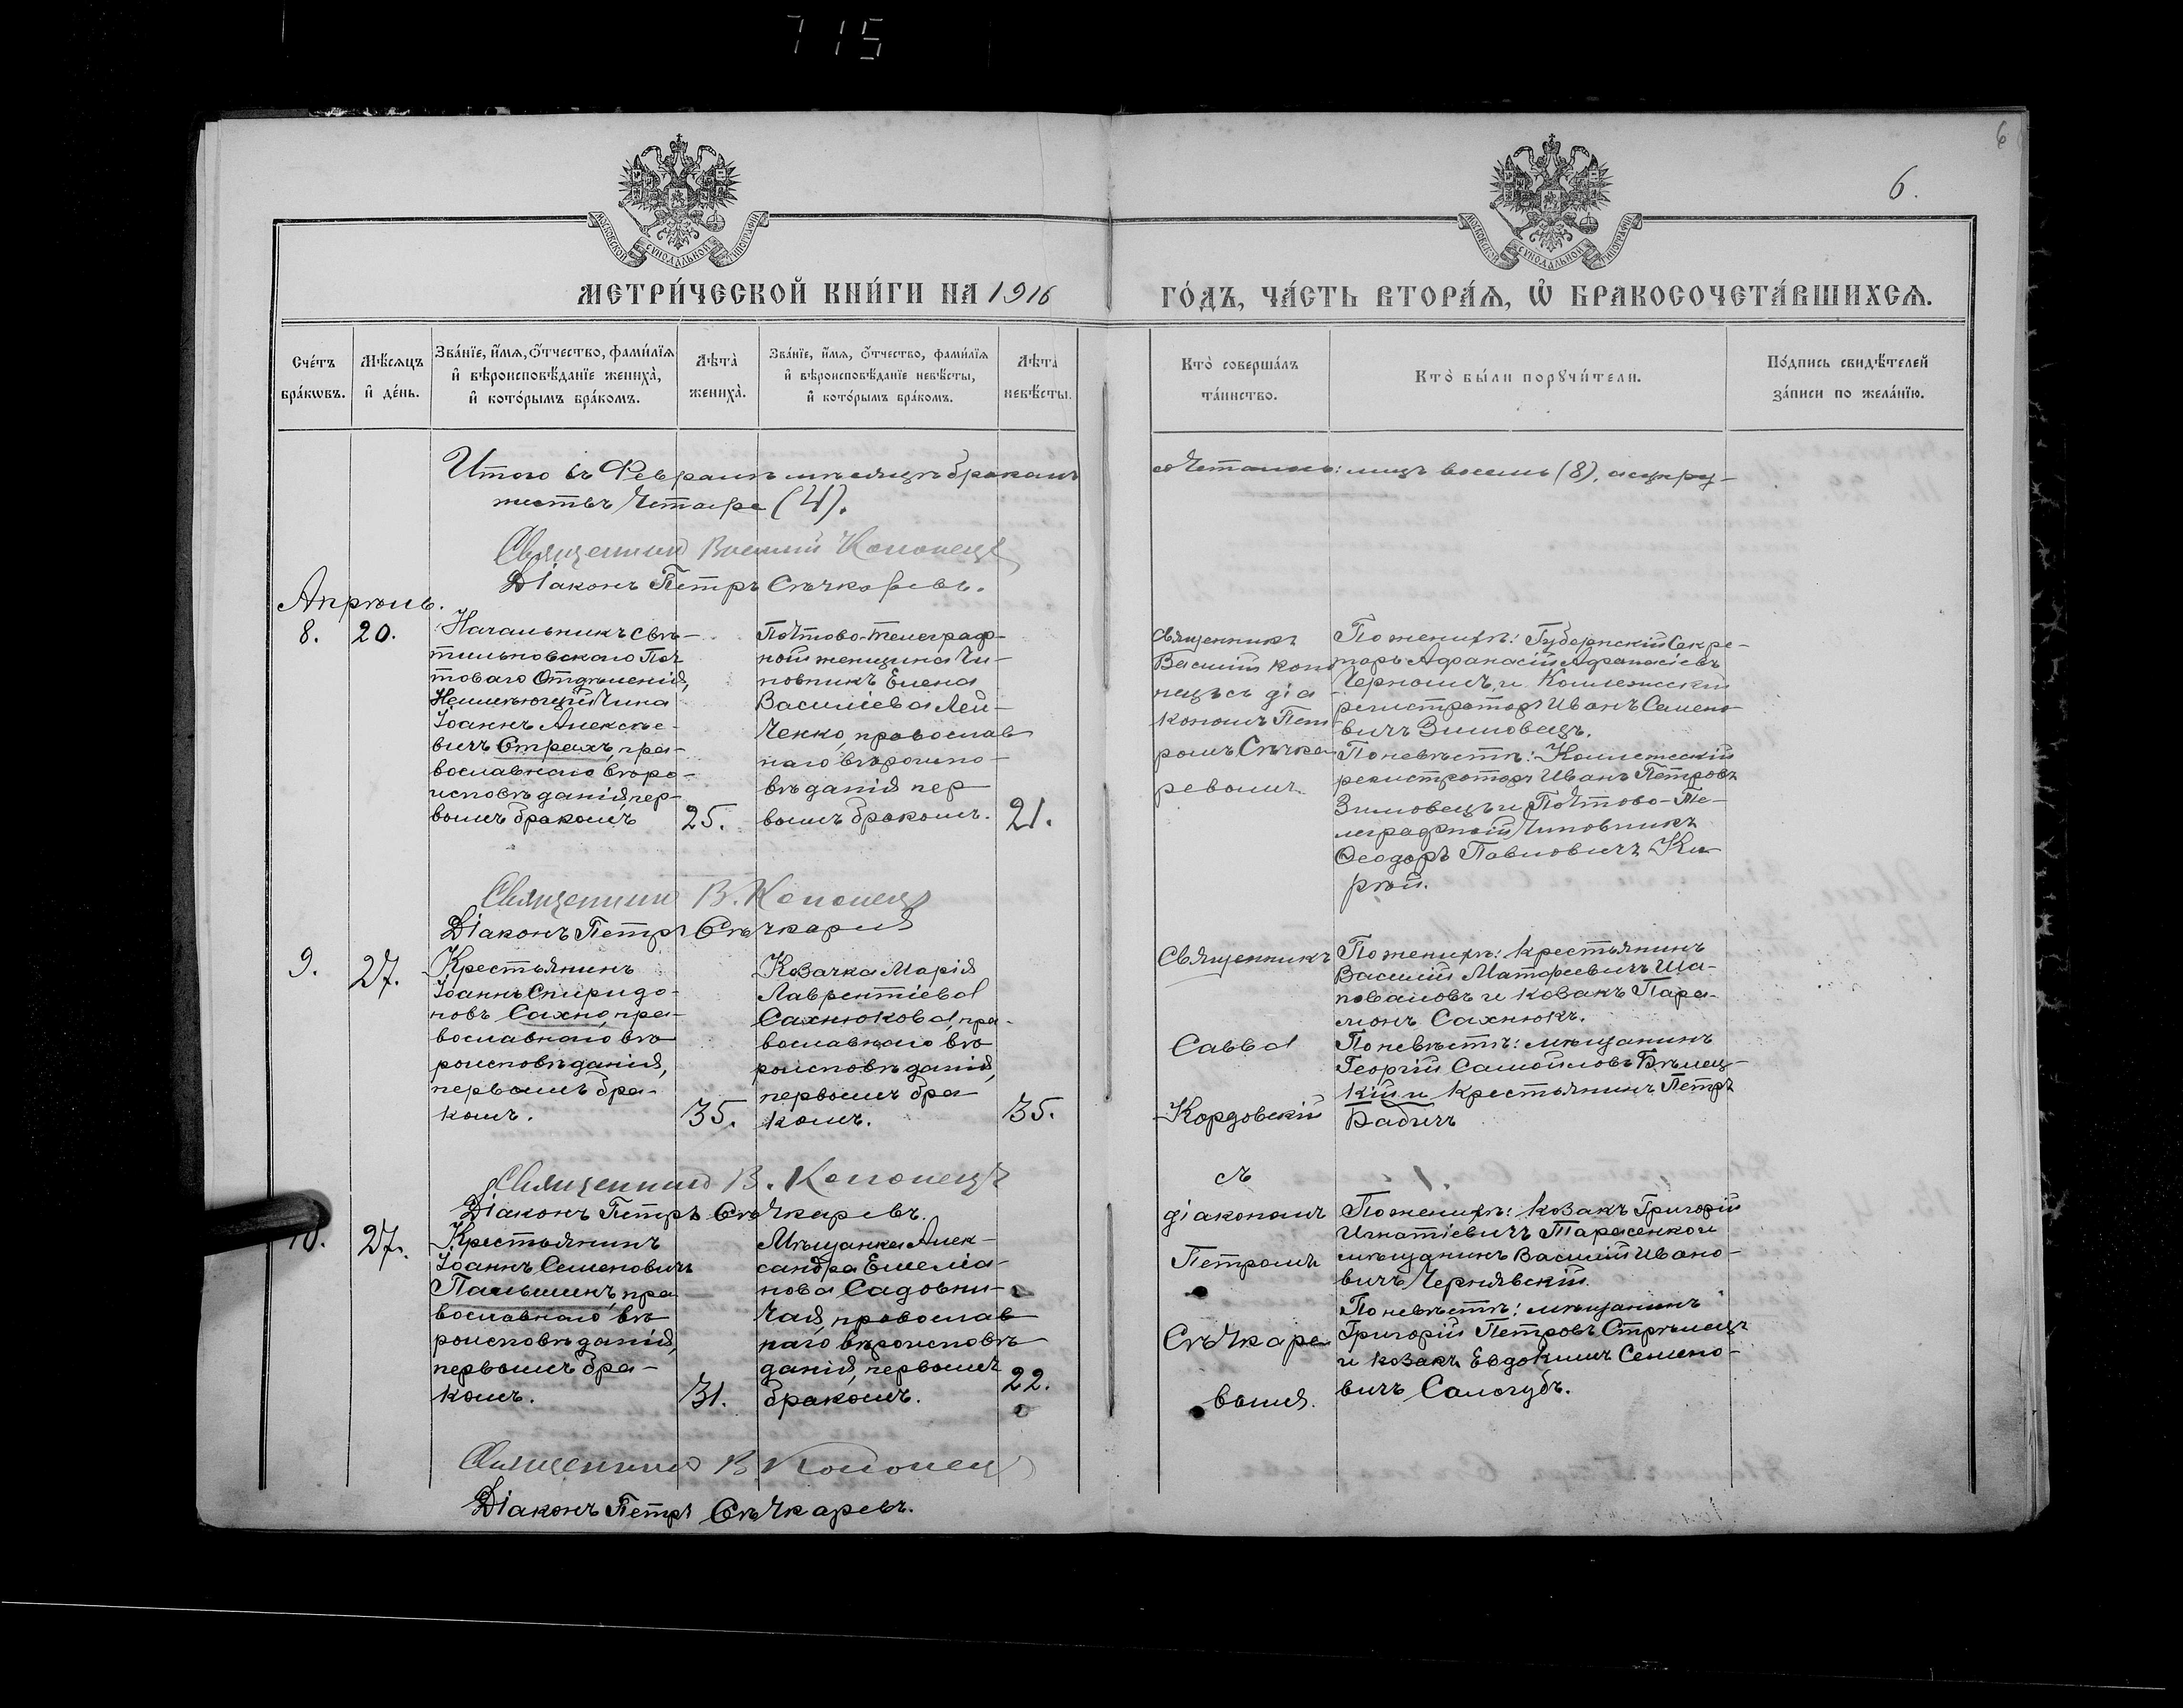 715
6
6.
МОСКОВСКОЙ СѴНОДАЛЬНОЙ ТИПОГРАФІИ
МОСКОВСКОЙ СѴНОДАЛЬНОЙ ТИПОГРАФІИ
МЕТРИ́ЧЕСКОЙ КНИ́ГИ НА 1916
ГО́ДЪ, ЧА́СТЬ ВТОРА́Ѧ, Ѽ БРАКОСОЧЕТА́ВШИХСѦ.
Сче́тъ бра́кѡвъ.
Мѣ́сяцъ и҆ де́нь.
Зва́нїе, и҆́мѧ, ѻ҆́тчество, фами́лїѧ
и҆ вѣроисповѣ́данїе жениха̀,
и҆ кото́рымъ бра́комъ.
Лѣта̀ жениха̀.
Зва́нїе, и҆́мѧ, ѻ҆́тчество, фами́лїѧ
и҆ вѣроисповѣ́данїе невѣ́сты,
и҆ кото́рымъ бра́комъ.
Лѣта̀ невѣ́сты.
Кто̀ соверша́лъ
та́инство.
Кто̀ бы́ли порꙋчи́тели.
По́дпись свидѣ́телей
за́писи по жела́нїю.
Итого въ Февралѣ мѣсяцѣ бракомъ
сочетались: лицъ восемь (8), а супру-
жествъ четыре (4).
Священникъ Василій Кононецъ
Діаконъ Петръ Сѣчкаревъ.
Апрѣль.
8. 20.
Начальникъ Свѣ-
тильновскаго Поч
товаго Отдѣленія,
Неимѣющій Чина
Іоаннъ Алексѣе-
вичъ Страхъ, пра-
вославнаго вѣро-
исповѣданія, пер-
вымъ бракомъ
25.
Почтово-телеграф-
ной женщина Чи-
новникъ Елена
Василіева Лей-
ченко, православ
наго вѣроиспо-
вѣданія пер
вымъ бракомъ.
21.
Священникъ
Василій Коно
нецъ съ діа-
кономъ Пет-
ромъ Сѣчка
ревымъ
По женихѣ: Губернскій Секре-
тарь Афанасій Афанасіевъ
Чернышъ и Коллежскій
регистраторъ Иванъ Семено
вичъ Зимовецъ.
По невѣстѣ: Коллежскій
регистраторъ Иванъ Петровъ
Зимовецъ и Почтово-Те-
леграфный Чиновникъ
Ѳеодоръ Павловичъ Ки-
рѣй.
Священникъ В. Кононецъ
Діаконъ Петръ Сѣчкарев
9. 27.
Крестьянинъ
Іоаннъ Спиридо-
новъ Сахно, пра-
вославнаго вѣ
роисповѣданія,
первымъ бра-
комъ.
35.
Козачка Марія
Лаврентіева
Сахнюкова, пра-
вославнаго вѣ
роисповѣданія,
первымъ бра
комъ.
35.
Священникъ
Савва
Кордовскій
съ
діакономъ
Петромъ
Сѣчкаре
вымъ.
По женихѣ: крестьянинъ
Василій Матфеевичъ Ша-
поваловъ и козакъ Пара-
монъ Сахнюкъ.
По невѣстѣ: мѣщанинъ
Георгій Самойловъ Бѣлец-
кій и крестьянинъ Петръ
Бабичъ
Священникъ В. Кононецъ
Діаконъ Петръ Сѣчкаревъ.
10. 27.
Крестьянинъ
Іоаннъ Семеновичъ
Пальшинъ, пра
вославнаго вѣ
роисповѣданія,
первымъ бра-
комъ.
31.
Мѣщанка Алек-
сандра Емелiа-
нова Садовни-
чая, православ
наго вѣроисповѣ
данія, первымъ
бракомъ.
22.
По женихѣ: козакъ Григорій
Игнатіевичъ Тарасенко и
мѣщанинъ Василій Ивано-
вичъ Чернявскій.
По невѣстѣ: мѣщанинъ
Григорій Петровъ Стрѣлецъ
и козакъ Евдокимъ Семено-
вичъ Салогубъ.
Священникъ В Кононецъ
Діаконъ Петръ Сѣчкаревъ.